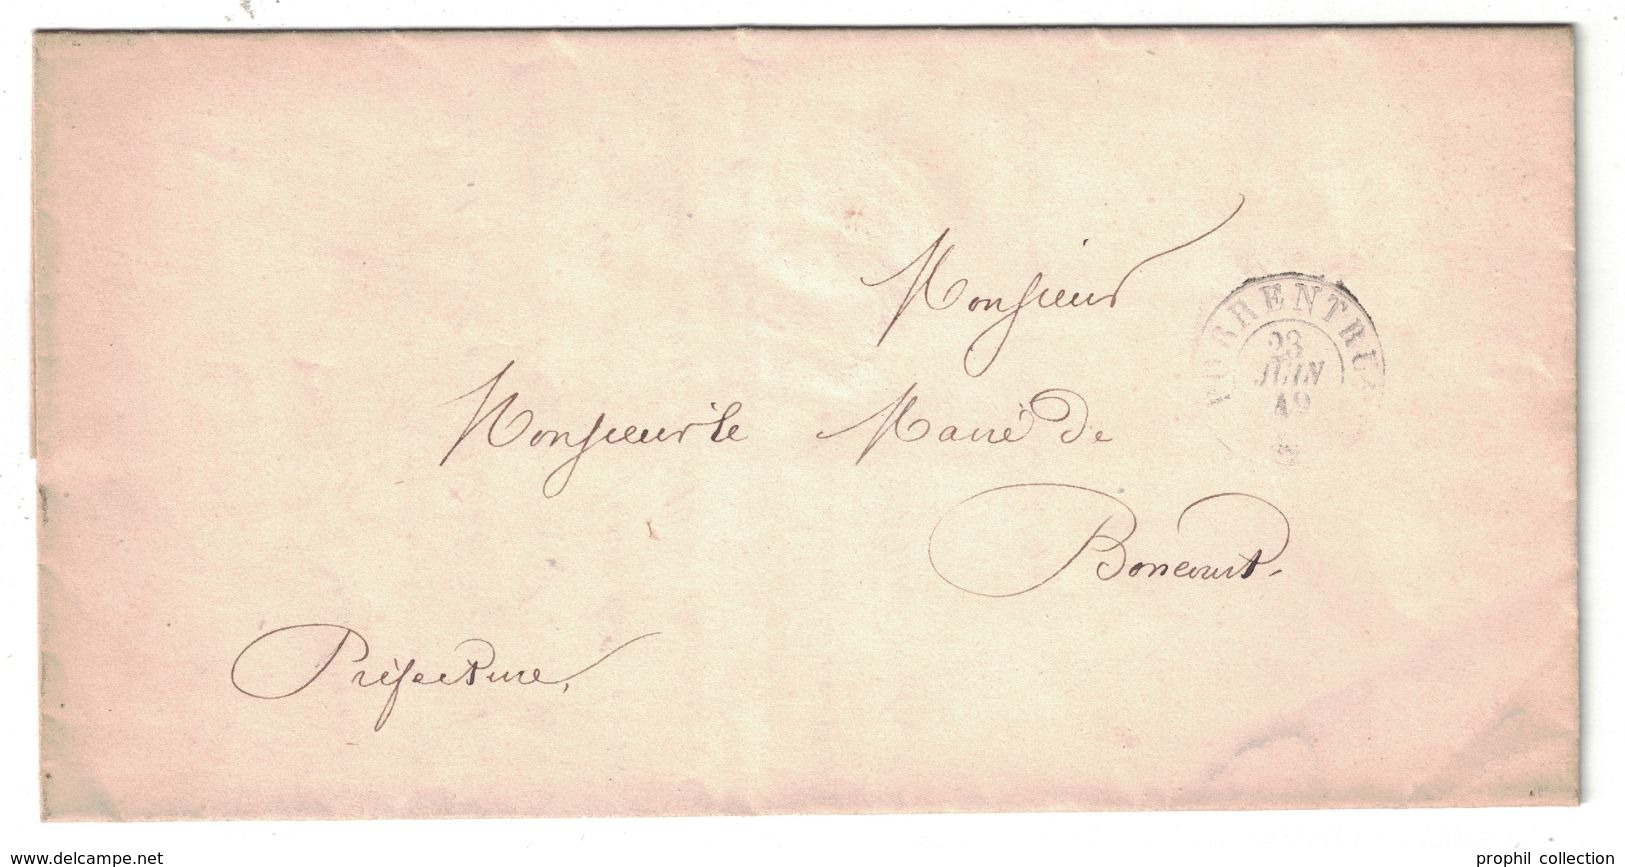 Monsieur
PORRENTRUY
23
JUIN
49
Monsieur le Maire de
Boncourt.
Préfecture,
www.delcampe.net
prophil collection